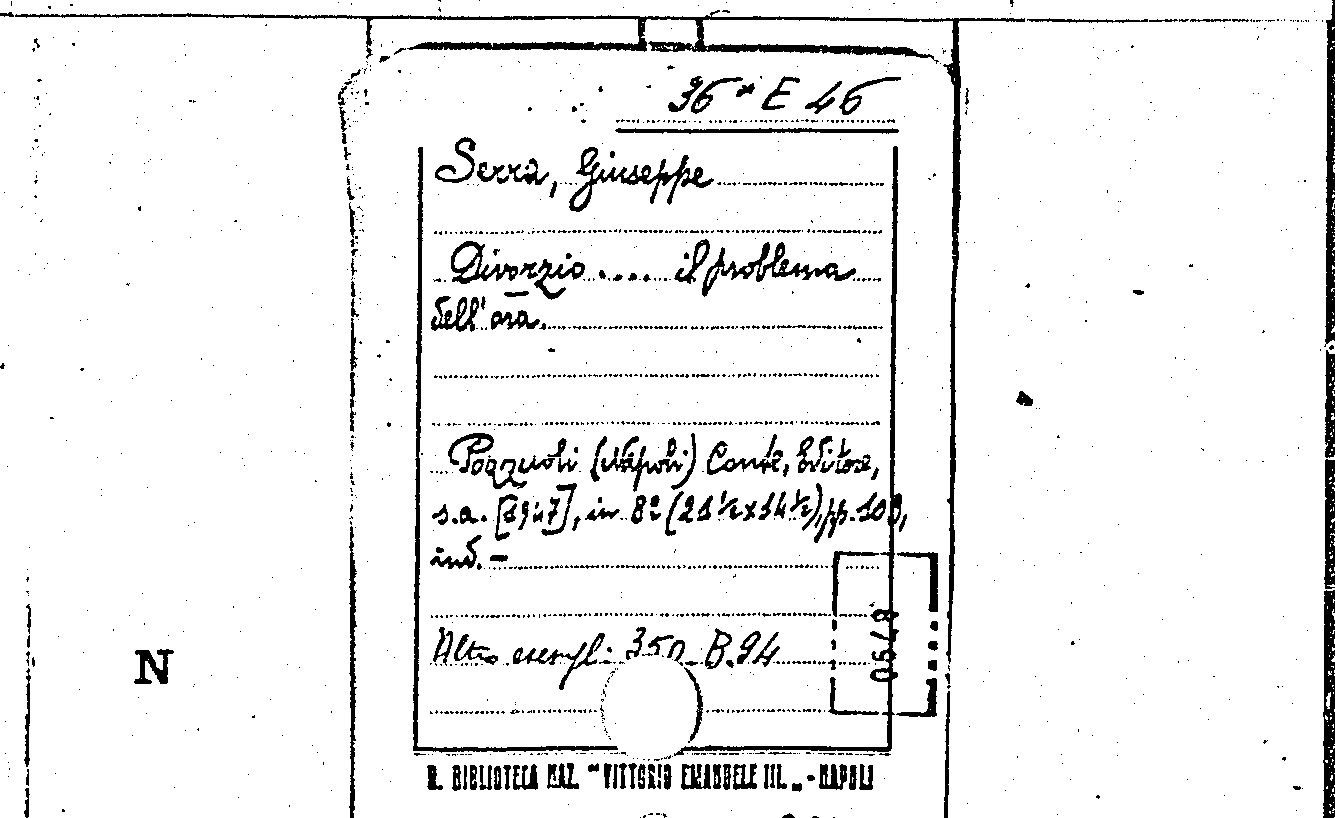 36ª E 46
Serra, Giuseppe
Divorzio .... il problema
dell'ora.
Pozzuoli (Napoli) Conte, Editore,
s.a. [1947], in 8º (21½x14½), pp. 108,
ind. —
Altro esempl: 350. B. 94
0548
N
R. BIBLIOTECA NAZ. "VITTORIO EMANUELE III." - NAPOLI